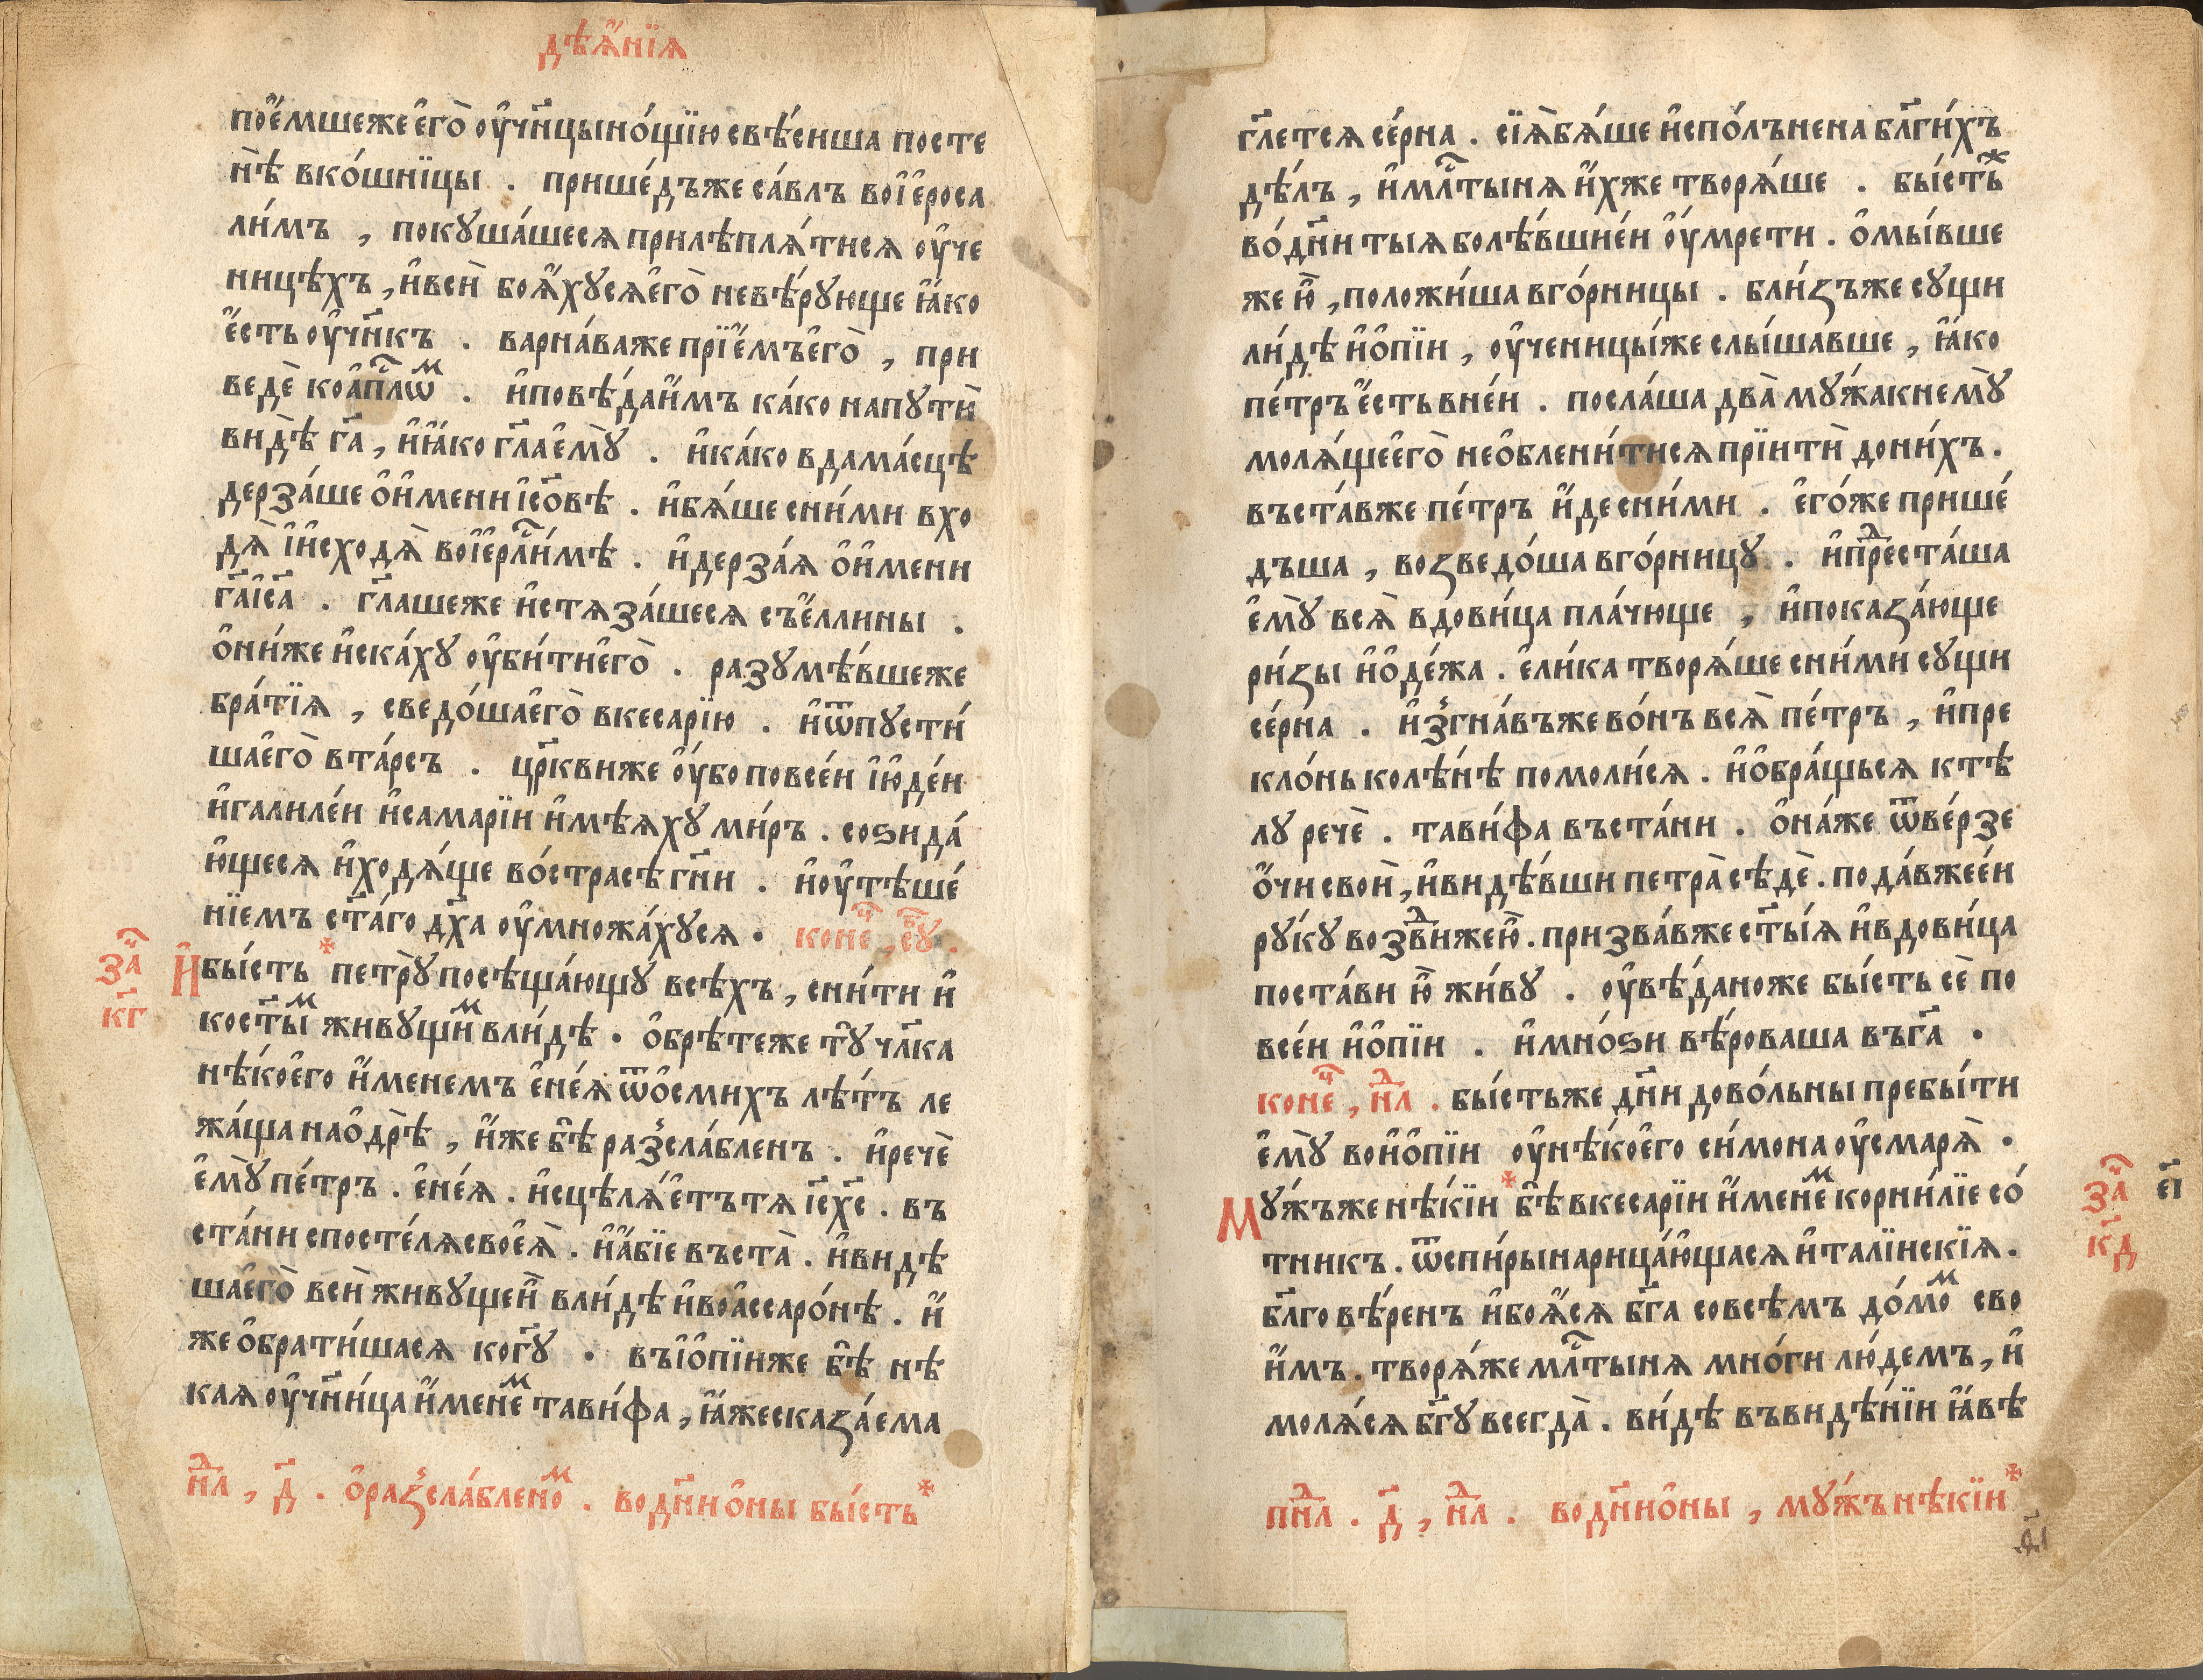 дѣѧ҆́нїѧ
пое҆́мшеже е҆го̀ оу҆чн҃цы но́щїю свѣ́сиша посте
нѣ̀ вко́шнїцы . прише́дъже са́влъ воі҆е҆роса
ли́мъ , покуша́шесѧ прилѣплѧ́тисѧ оу҆че
ницѣхъ , и҆всѝ боѧ҆́хусѧ е҆го̀ невѣ́рующе ꙗ҆́ко
е҆́сть оу҆чн҃къ . варна́важе прїе҆́мъ е҆го̀ , при
ведѐ коа҆пⷭ҇лѡⷨ . и҆повѣ́даи҆́мъ ка́ко напутѝ
ви́дѣ гⷭ҇а , и҆ꙗ҆́ко гл҃а е҆мꙋ̀ . и҆ка́ко вдама́сцѣ
дерза́ше о҆и҆мени і҆сⷭ҇овѣ . и҆бѧ́ше сни́ми вхо
дѧ̀ і҆и҆сходѧ̀ воі҆е҆рлⷭ҇и́мѣ . и҆дерза́ѧ о҆и҆мени
гⷭ҇а і҆сⷭ҇а . гл҃ашеже и҆стѧза́шесѧ съе҆́ллины .
о҆ни́же и҆ска́ху оу҆би́ти е҆го̀ . разумѣ́вшеже
бра́тїѧ , сведо́ша е҆го̀ вкесарїю . и҆ѿпусти́
ша е҆го̀ вта́рсъ . цр҃квиже оу҆́бо повсе́и і҆ю҆де́и
и҆галиле́и и҆самарїи и҆мѣѧху ми́ръ . соѕида́
ю҆щесѧ и҆ходѧ́ще во́страсѣ гⷭ҇ни . и҆оу҆тѣше́
нїемъ ст҃а́го дх҃а оу҆множа́хусѧ . конеⷰ҇ , сꙋⷠ҇ .
заⷱ҇ Ибы́сть петрꙋ̀ посѣща́ющу всѣхъ , сни́ти и҆
кг҃ кост҃ыⷨ живущиⷨ вли́дѣ . о҆брѣтеже тꙋ̀ чл҃ка
нѣ́кое҆го и҆́менемъ е҆не́ѧ ѿо҆смихъ лѣ́тъ ле
жа́ща нао҆дрѣ̀ , и҆́же бѣ̀ разⸯсла́бленъ . и҆речѐ
е҆мꙋ̀ пе́тръ . е҆не́ѧ . и҆сцѣлѧ́е҆тътѧ і҆с҃х҃с . въ
ста́ни спосте́лѧ своеѧ̀ . и҆а҆́бїе въста̀ . и҆видѣ
ша е҆го̀ всѝ живущеи҆̀ вли́дѣ и҆воа҆ссаро́нѣ . и҆́
же о҆брати́шасѧ когⷭ҇у . въі҆о҆пїиже бѣ̀ нѣ
каѧ оу҆чн҃и́ца и҆́менеⷨ тави́фа , ꙗ҆́же сказа́ема
нⷣл , д҃ . о҆разⸯсла́бленоⷨ . водн҃и о҆ны бы́сть
гл҃етсѧ се́рна . сїѧ̀ бѧ́ше и҆спо́лънена бл҃ги́хъ
дѣ́лъ , и҆млⷭ҇тынѧ и҆́хже творѧ́ше . бы́стьⷤ
во́дн҃и тыѧ болѣ́вшие́и оу҆́мрети . о҆мы́вше
же ю҆̀ , положи́ша вго́рницы . бли́зъже сущи
ли́дѣ и҆о҆пїи , оу҆ченицы́же слы́шавше , ꙗ҆́ко
пе́тръ е҆́сть вне́и . посла́ша два̀ му́жа кнемꙋ̀
молѧ́ще е҆го̀ нео҆блени́тисѧ прїитѝ дони́хъ .
въста́вже пе́тръ и҆́де сни́ми . е҆го́же прише́
дъша , возведо́ша вго́рницу . и҆прⷣеста́ша
е҆мꙋ̀ всѧ̀ вдови́ца пла́чюще , и҆показа́юще
ри́зы и҆о҆де́жа . е҆ли́ка творѧ́ше сни́ми сущи
се́рна . и҆зⸯгна́въже во́нъ всѧ̀ пе́тръ , и҆пре
кло́нь колѣ́нѣ помоли́сѧ . и҆о҆бра́щьсѧ ктѣ
лу речѐ . тави́фа въста́ни . о҆на́же ѿве́рзе
о҆́чи своѝ , и҆видѣ́вши петра̀ сѣ́дѐ . пода́вжее́и
ру́ку возⷣвиже ю҆̀ . призва́вже ст҃ы́ѧ и҆вдови́ца
поста́ви ю҆̀ жи́ву . оу҆вѣ́даноже бы́сть сѐ по
все́и и҆о҆пїи . и҆мно́ѕи вѣ́роваша въгⷭ҇а .
конеⷰ҇ , нⷣл . бы́стьже дн҃и дово́льны пребы́ти
е҆мꙋ̀ вои҆о҆пїи оу҆нѣ́кое҆го си́мона оу҆смарѧ̀ .
Му́жъже нѣ́кїи бѣ̀ вкесарїи и҆́менеⷨ корни́лїе со́ заⷱ҇ еі҃
тникъ . ѿспи́ры нарица́ю҆щасѧ и҆талїискїѧ . кд҃
бл҃говѣ́ренъ и҆боѧ҆́сѧ бг҃а совсѣмъ до́моⷨ сво
и҆́мъ . творѧ́же млⷭ҇тынѧ мно́ги лю́демъ , и҆
молѧ́сѧ бг҃у всегда̀ . ви́дѣ въвидѣ́нїи ꙗ҆́вѣ
пнⷣл . д҃ , нⷣл . водн҃и о҆ны , му́жъ нѣ́кїи